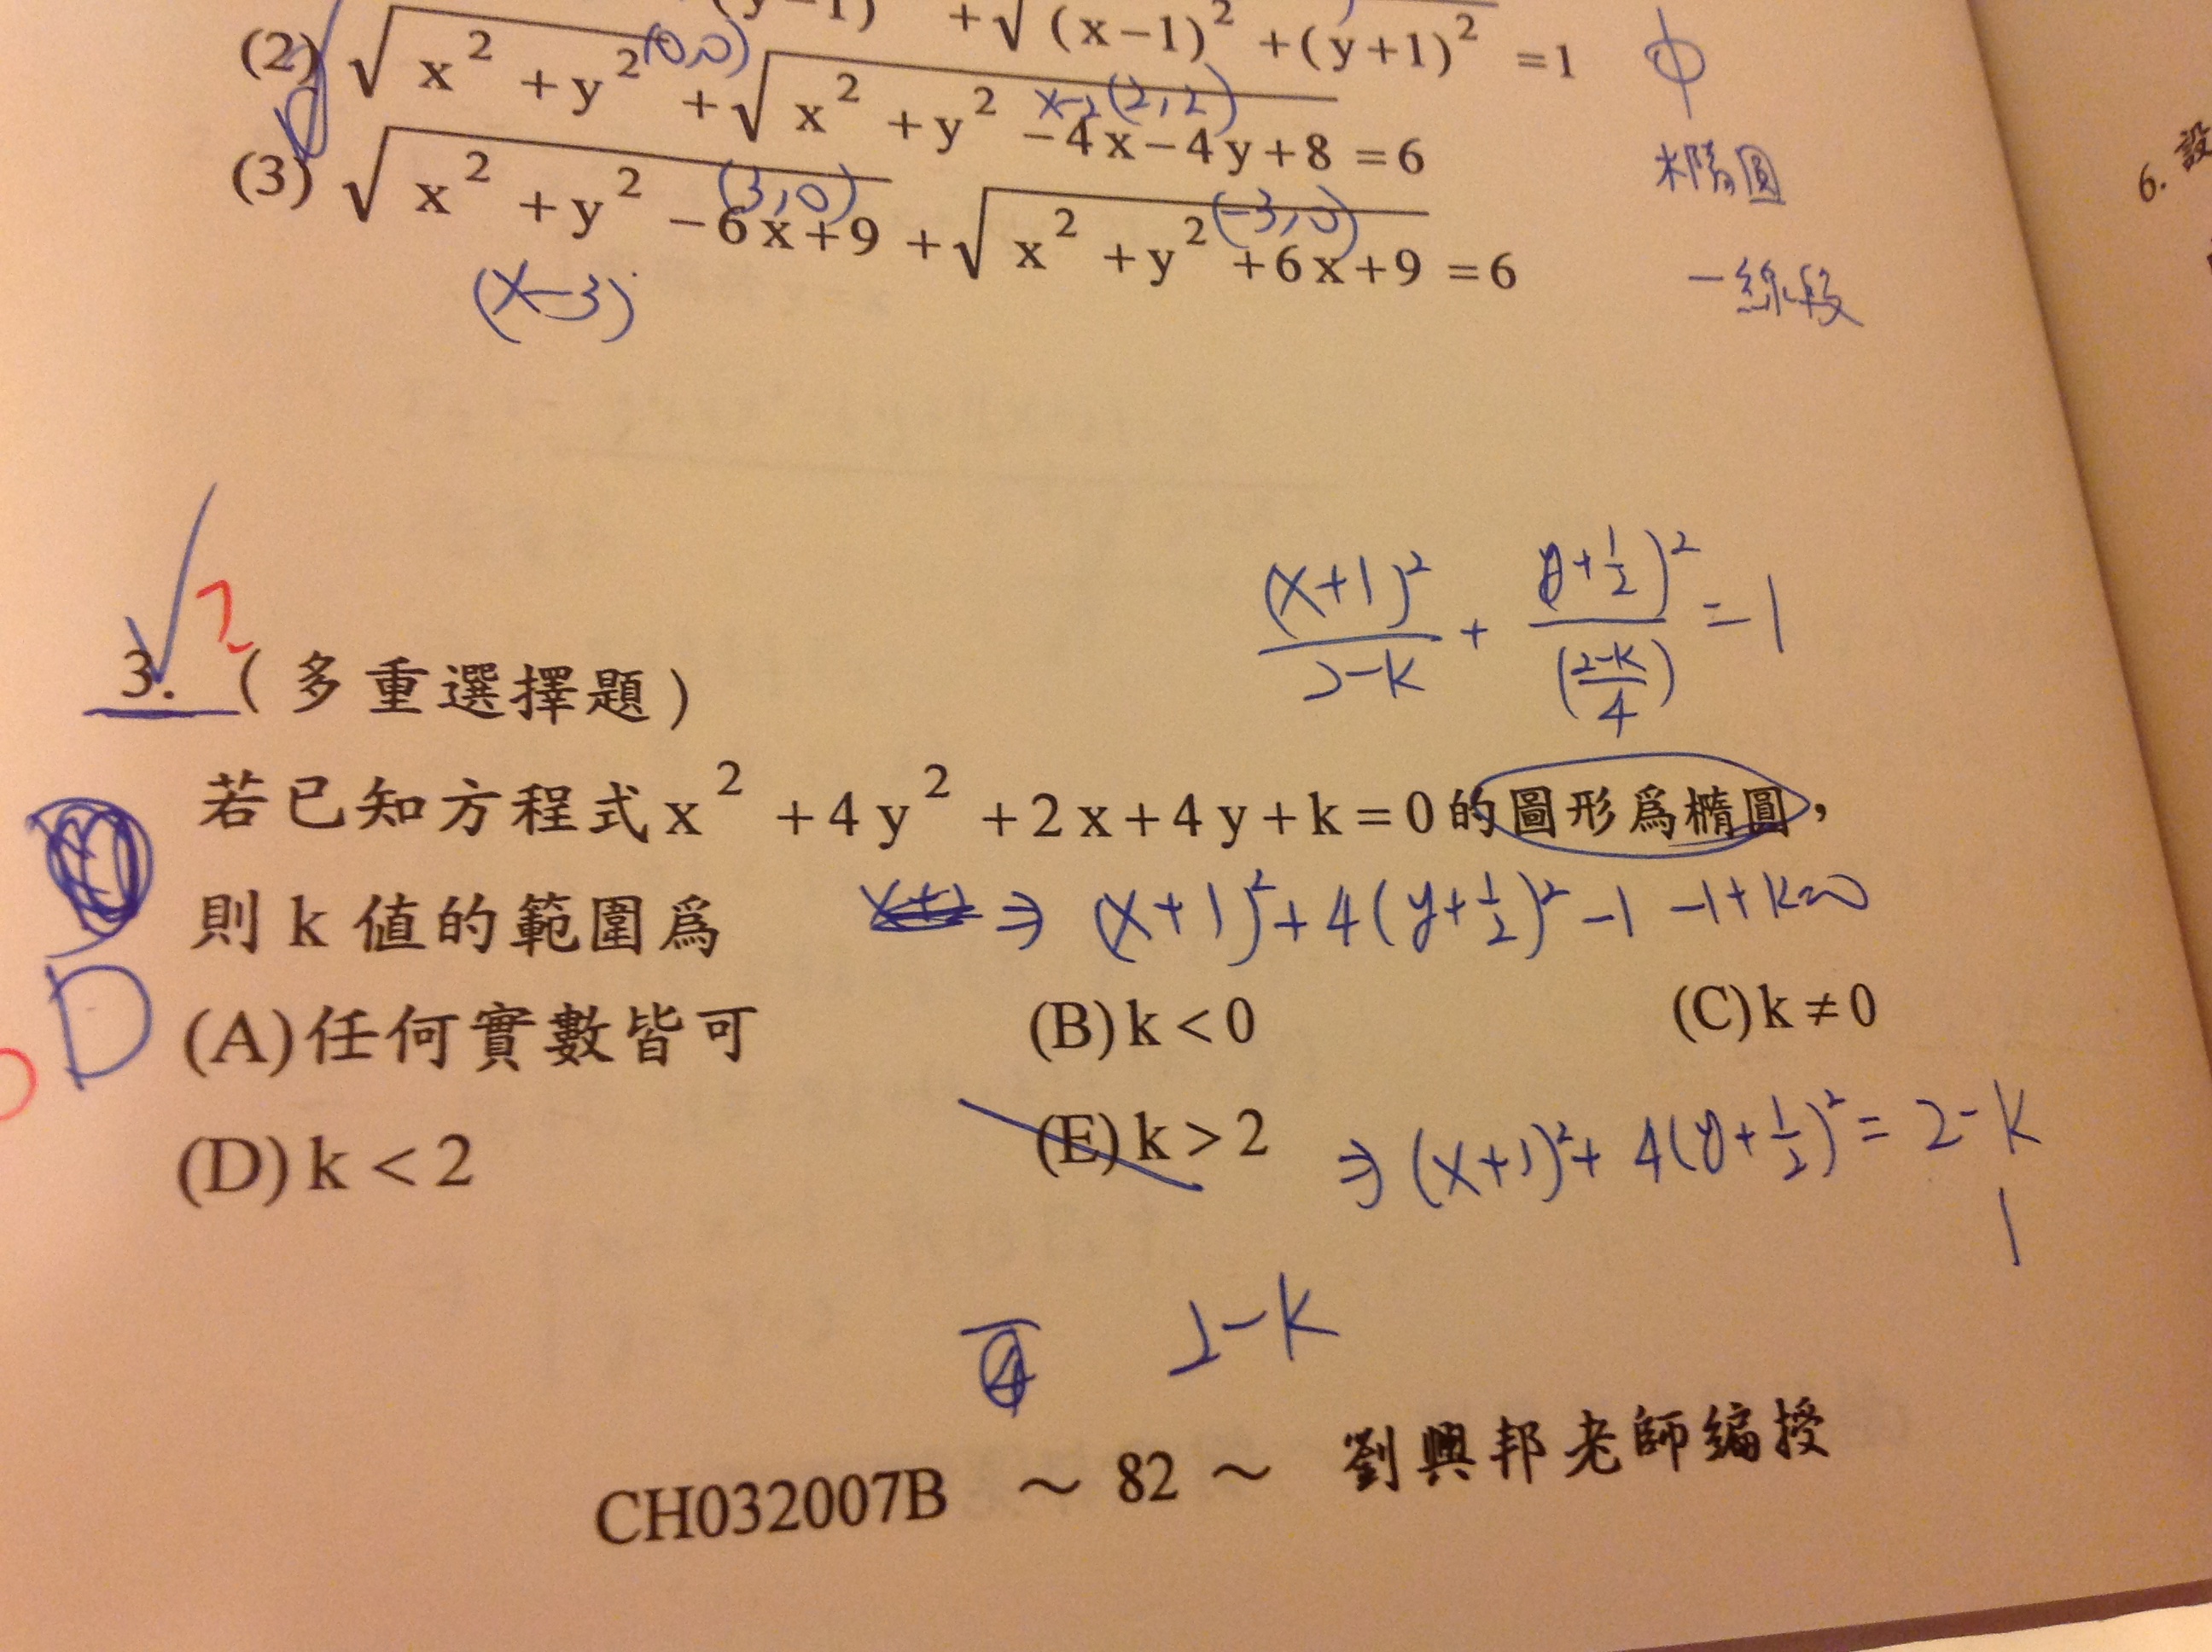 +√(x−1)² +(y+1)² =1
(2) √x² +y² +√x² +y² −4x−4y+8 =6
(0,0)
(2,2)
橢圓
(3) √x² +y² −6x+9 +√x² +y² +6x+9 =6
(3,0)
(−3,0)
一線段
(x−3)
6. 設
(x+1)²/2−k + (y+½)²/(2−k/4) = 1
3. (多重選擇題)
若已知方程式x² +4y² +2x+4y+k=0的圖形為橢圓,
則 k 值的範圍為
⇒ (x+1)²+4(y+½)²−1 −1+k=0
D
(A)任何實數皆可 (B)k<0 (C)k≠0
(D)k<2 (E)k>2
⇒ (x+1)²+4(y+½)²=2−k
2−k
CH032007B ~ 82 ~ 劉興邦老師編授